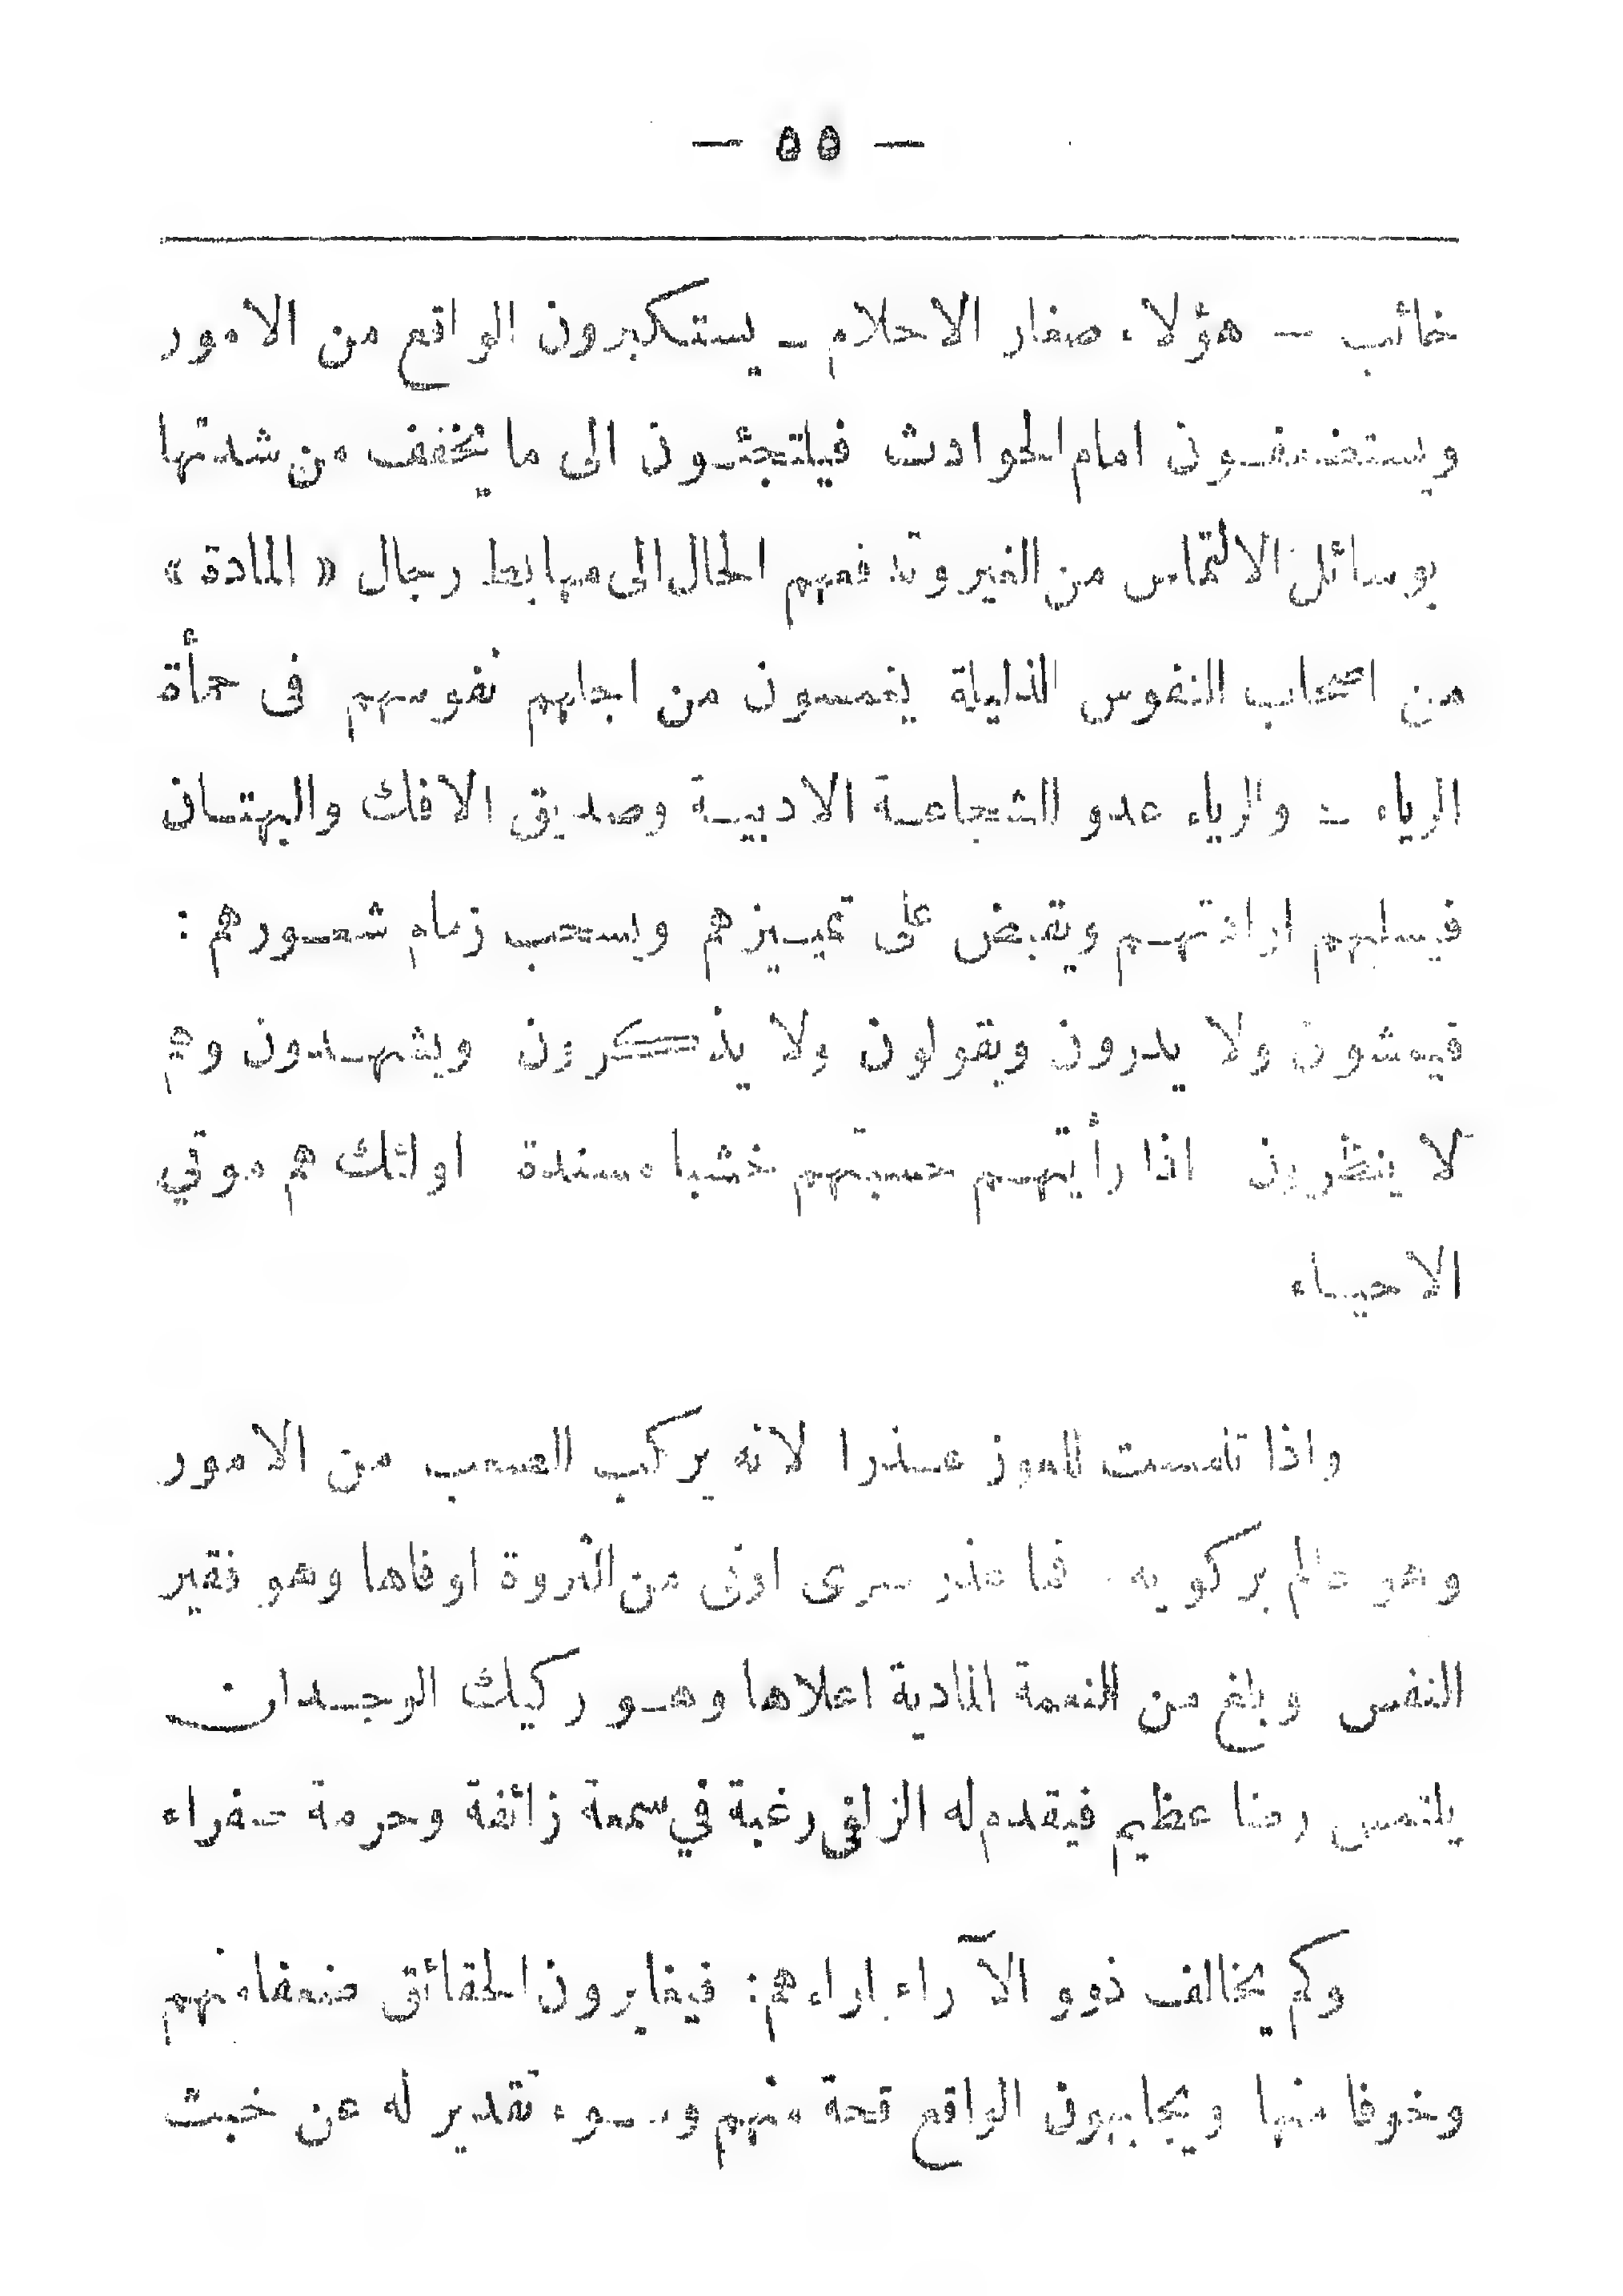 — ٥٥ —
خائب — هؤلاء صغار الاحلام — يستكبرون الواقع من الامور
ويستضعفون امام الحوادث فيلتجئون الى ما يخفف من شدتها
بوسائل الالتماس من الغير وتدفعهم الحال الى مهابط رجال « المادة »
من اصحاب النفوس الذليلة يغمسون من اجلهم نفوسهم فى حمأة
الرياء — والرياء عدو الشجاعة الادبية وصديق الافك والبهتان
فيسلبهم ارادتهم ويقبض على تمييزهم ويسحب زمام شعورهم :
فيمشون ولا يدرون ويقولون ولا يذكرون ويشهدون وهم
لا ينظرون اذا رأيتهم حسبتهم خشبا مسندة اولئك هم موتي
الاحياء
واذا تلمست للعوز عذرا لانه يركب الصعب من الامور
وهو عالم بركوبه فما عذر سرى اوتى من الثروة اوفاها وهو فقير
النفس وبلغ من النعمة المادية اعلاها وهو ركيك الوجدان
يلتمس رضا عظيم فيقدم له الزلفى رغبة في سمعة زائفة وحرمة صفراء
وكم يخالف ذوو الآراء اراءهم : فيغايرون الحقائق ضعفا منهم
وخوفا منها ويجابهون الواقع قحة منهم وسوء تقدير له عن خبث